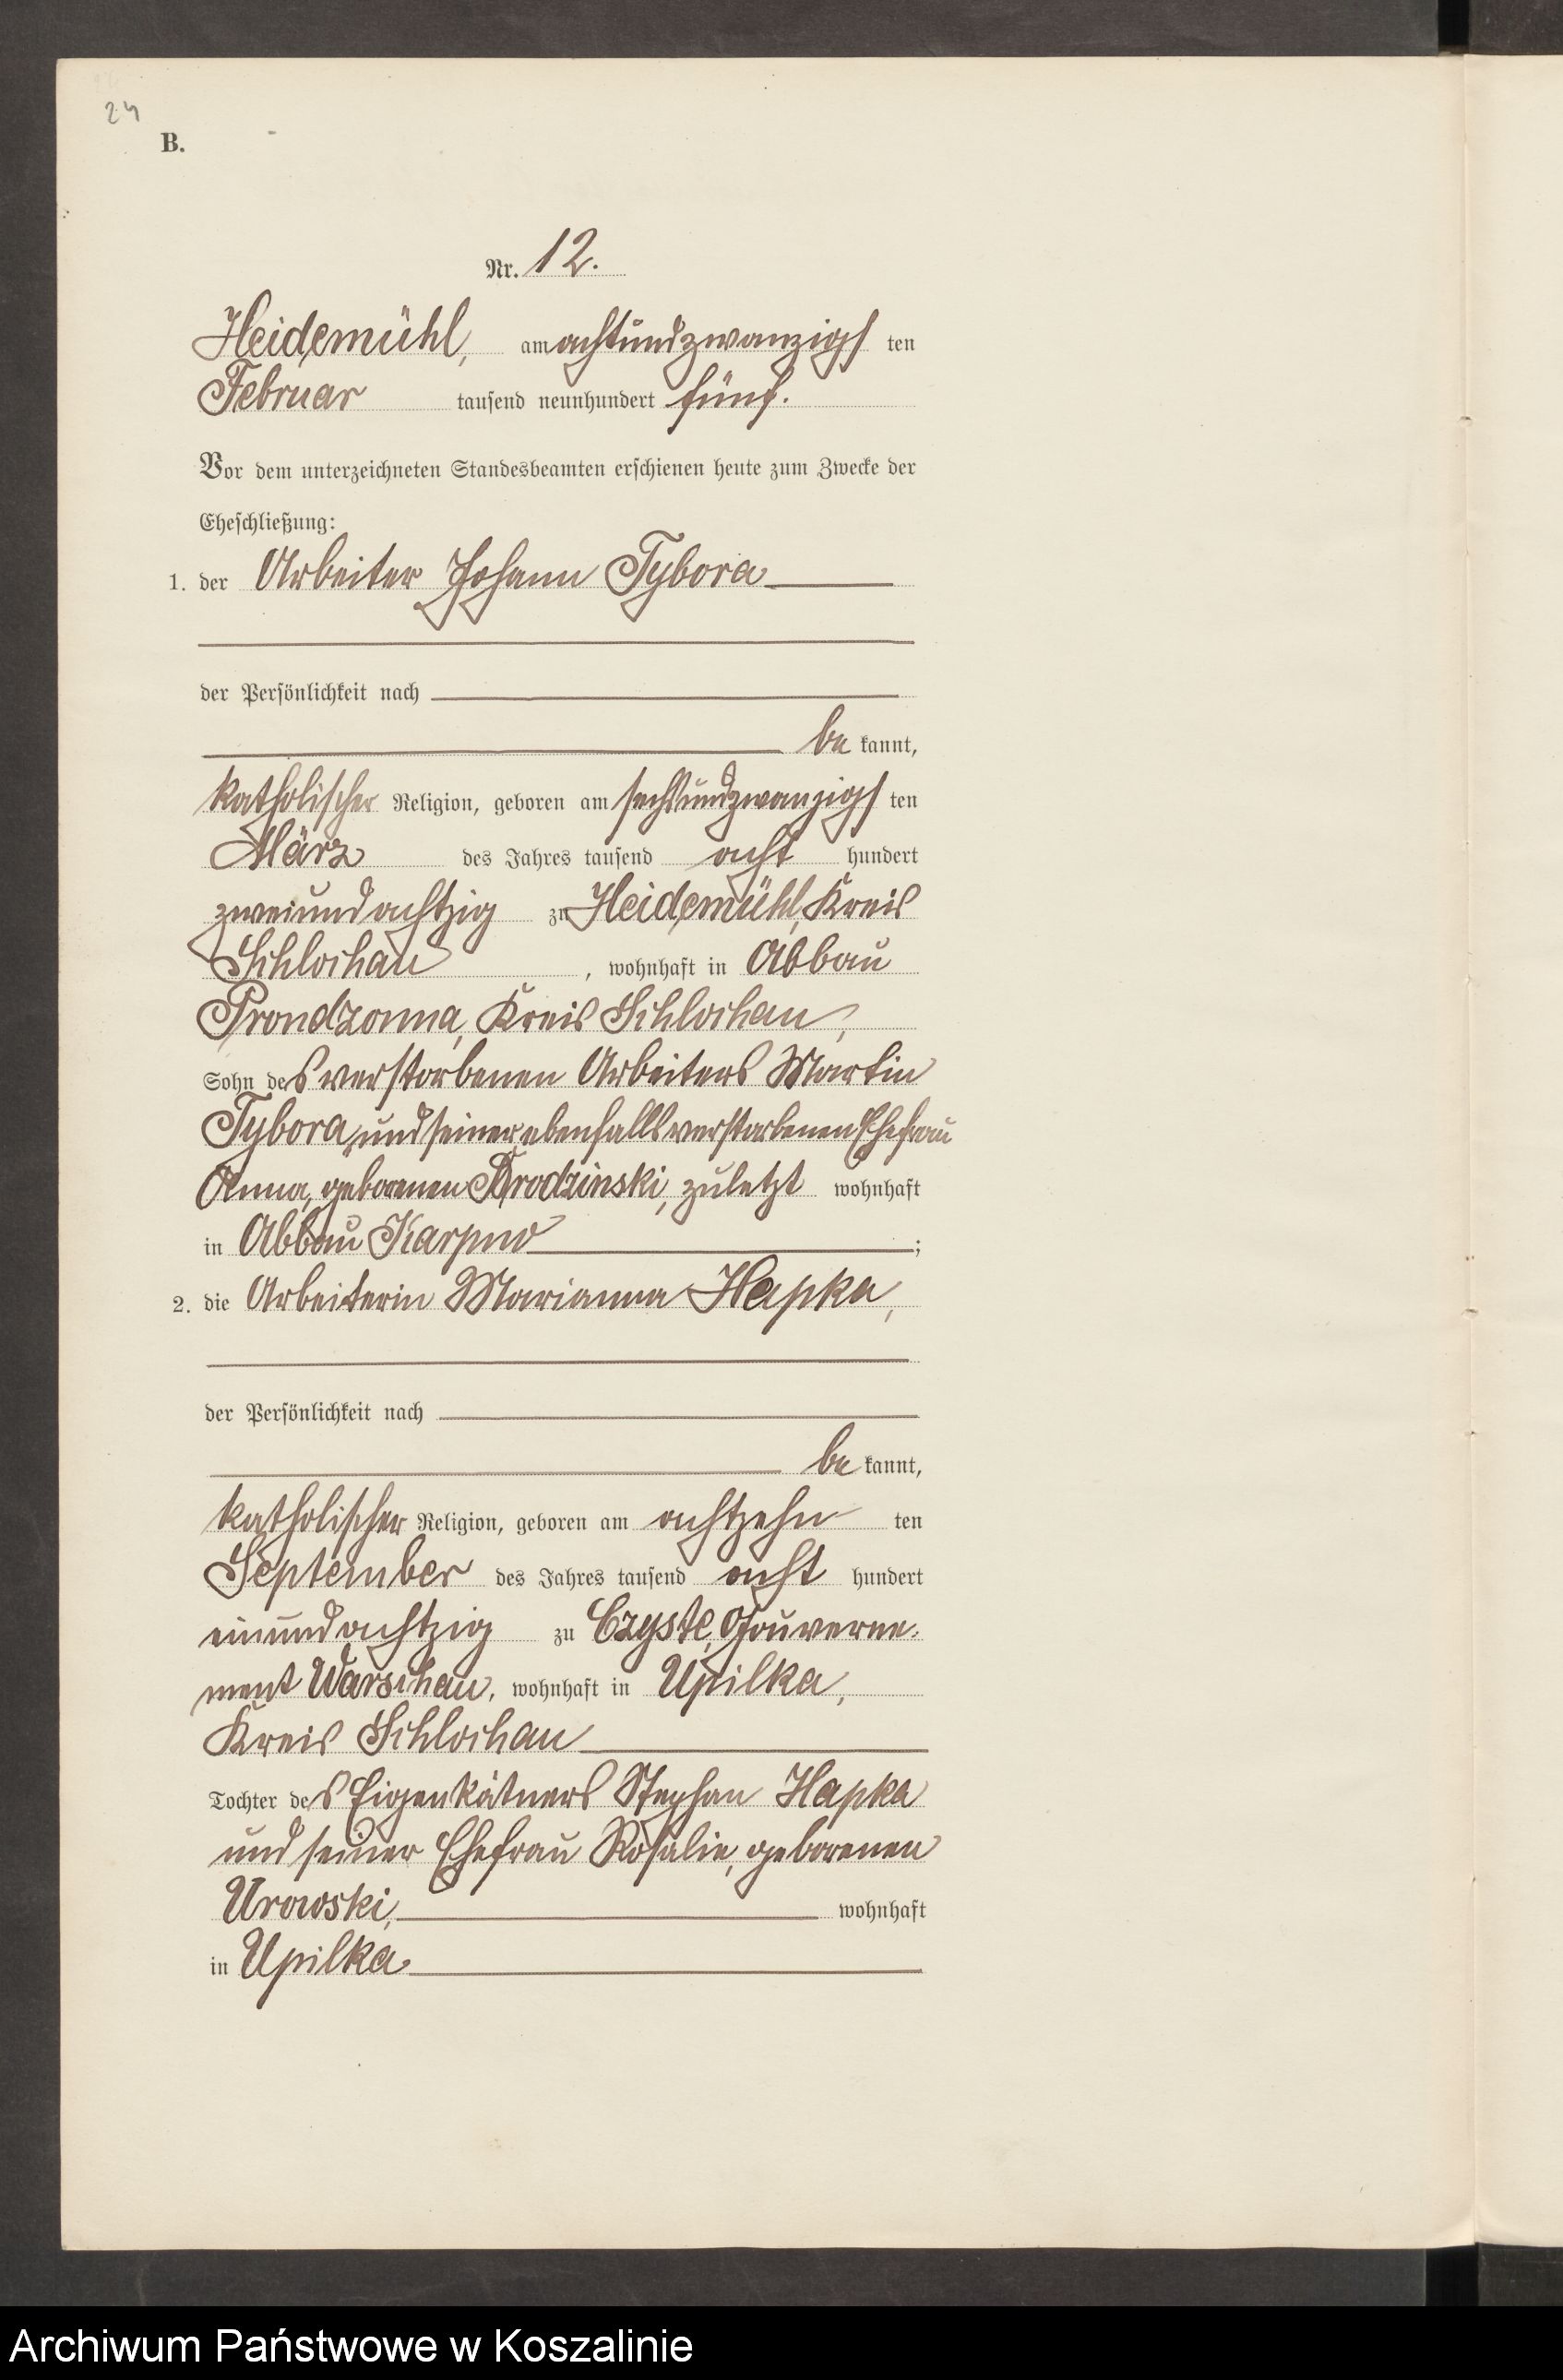 24
B.
Nr. 12.
Heidemühl, am achtundzwanzigs ten
Februar tausend neunhundert fünf.
Vor dem unterzeichneten Standesbeamten erschienen heute zum Zwecke der
Eheschließung:
1. der Arbeiter Johann Tybora
der Persönlichkeit nach
be kannt,
katholischer Religion, geboren am sechsundzwanzigs ten
März des Jahres tausend acht hundert
zweiundachtzig zu Heidemühl, Kreis
Schlochau, wohnhaft in Abbau
Prondzonna, Kreis Schlochau,
Sohn des verstorbenen Arbeiters Martin
Tybora, und seiner ebenfalls verstorbenen Ehefrau
Anna, geborenen zuletzt wohnhaft
in Abbau Karpno ;
2. die Arbeiterin Marianna Hapka,
der Persönlichkeit nach
be kannt,
katholischer Religion, geboren am achtzehn ten
September des Jahres tausend acht hundert
einundachtzig zu Czyste, Gouverne-
ment Warschau, wohnhaft in Upilka,
Kreis Schlochau
Tochter des Eigenkätners Stephan Hapka
und seiner Ehefrau Rosalie, geborenen
Urowski, wohnhaft
in Upilka
Archiwum Państwowe w Koszalinie